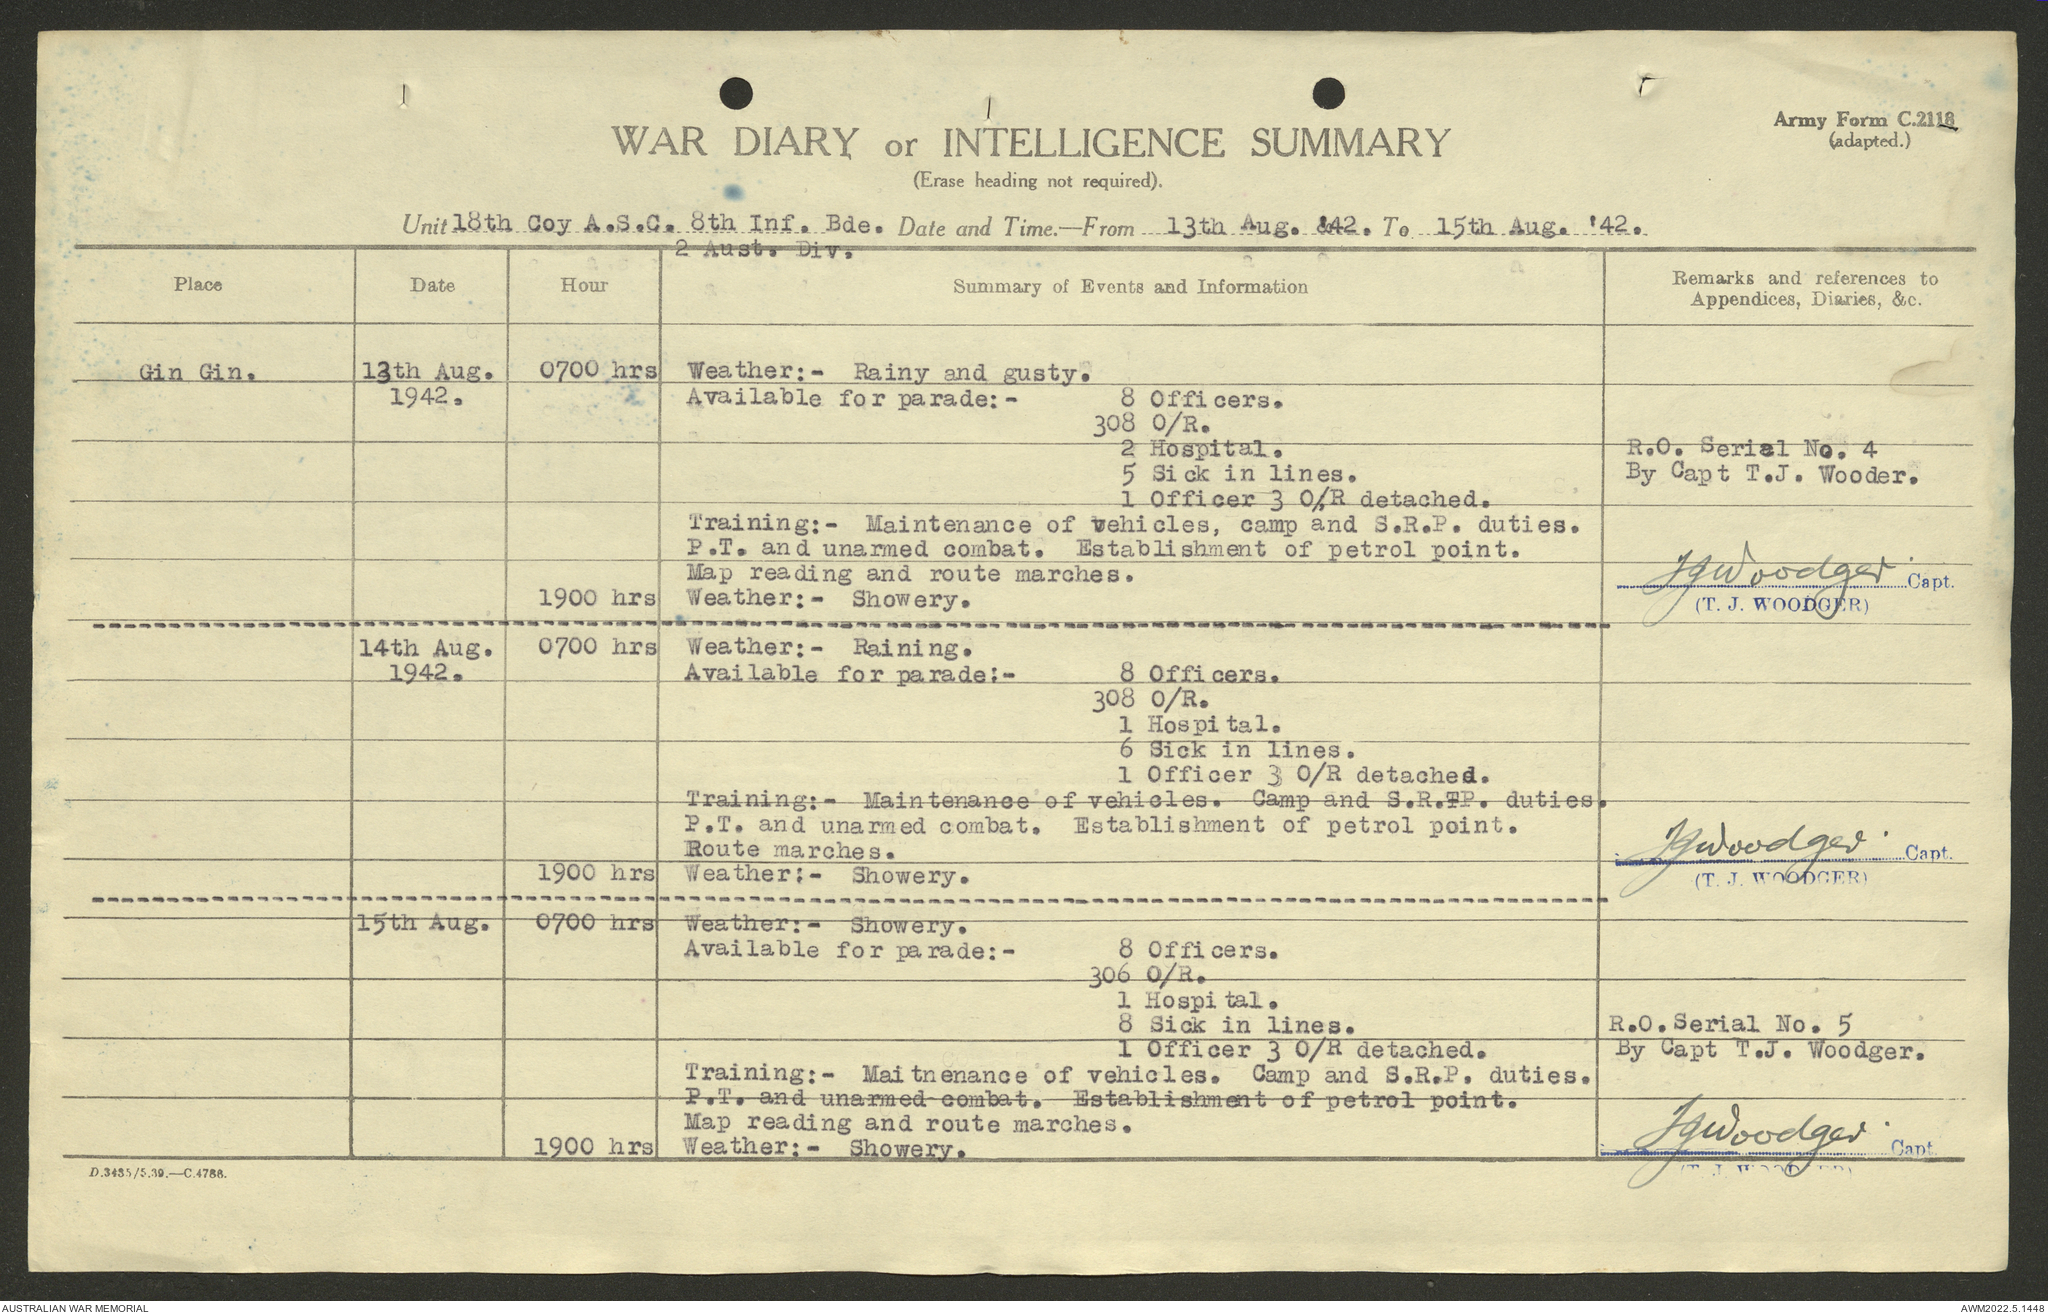 Army Form C.2118
(adapted.)
WAR DIARY or INTELLIGENCE SUMMARY
(Erase heading not required).
Unit 18th Coy A.S.C. 8th Inf. Bde. Date and Time.—From 13th Aug. '42. To 15th Aug. '42.
2 Aust. Div.
Place Date Hour Summary of Events and Information Remarks and references to
Appendices, Diaries, &c.
Gin Gin. 13th Aug. 0700 hrs Weather:- Rainy and gusty.
1942. Available for parade:- 8 Officers.
308 O/R.
2 Hospital. R.O. Serial No. 4
5 Sick in lines. By Capt T.J. Wooder.
1 Officer 3 O/R detached.
Training:- Maintenance of vehicles, camp and S.R.P. duties.
P.T. and unarmed combat. Establishment of petrol point.
Map reading and route marches. TJWoodger Capt.
1900 hrs Weather:- Showery. (T. J. WOODGER)
14th Aug. 0700 hrs Weather:- Raining.
1942. Available for parade:- 8 Officers.
308 O/R.
1 Hospital.
6 Sick in lines.
1 Officer 3 O/R detached.
Training:- Maintenance of vehicles. Camp and S.R.P. duties.
P.T. and unarmed combat. Establishment of petrol point.
Route marches. TJWoodger Capt.
1900 hrs Weather:- Showery. (T. J. WOODGER)
15th Aug. 0700 hrs Weather:- Showery.
Available for parade:- 8 Officers.
306 O/R.
1 Hospital.
8 Sick in lines. R.O. Serial No. 5
1 Officer 3 O/R detached. By Capt T.J. Woodger.
Training:- Maitnenance of vehicles. Camp and S.R.P. duties.
P.T. and unarmed combat. Establishment of petrol point.
Map reading and route marches. TJWoodger Capt.
1900 hrs Weather:- Showery. (T. J. WOODGER)
D.3435/5.39.—C.4786.
AUSTRALIAN WAR MEMORIAL AWM2022.5.1448